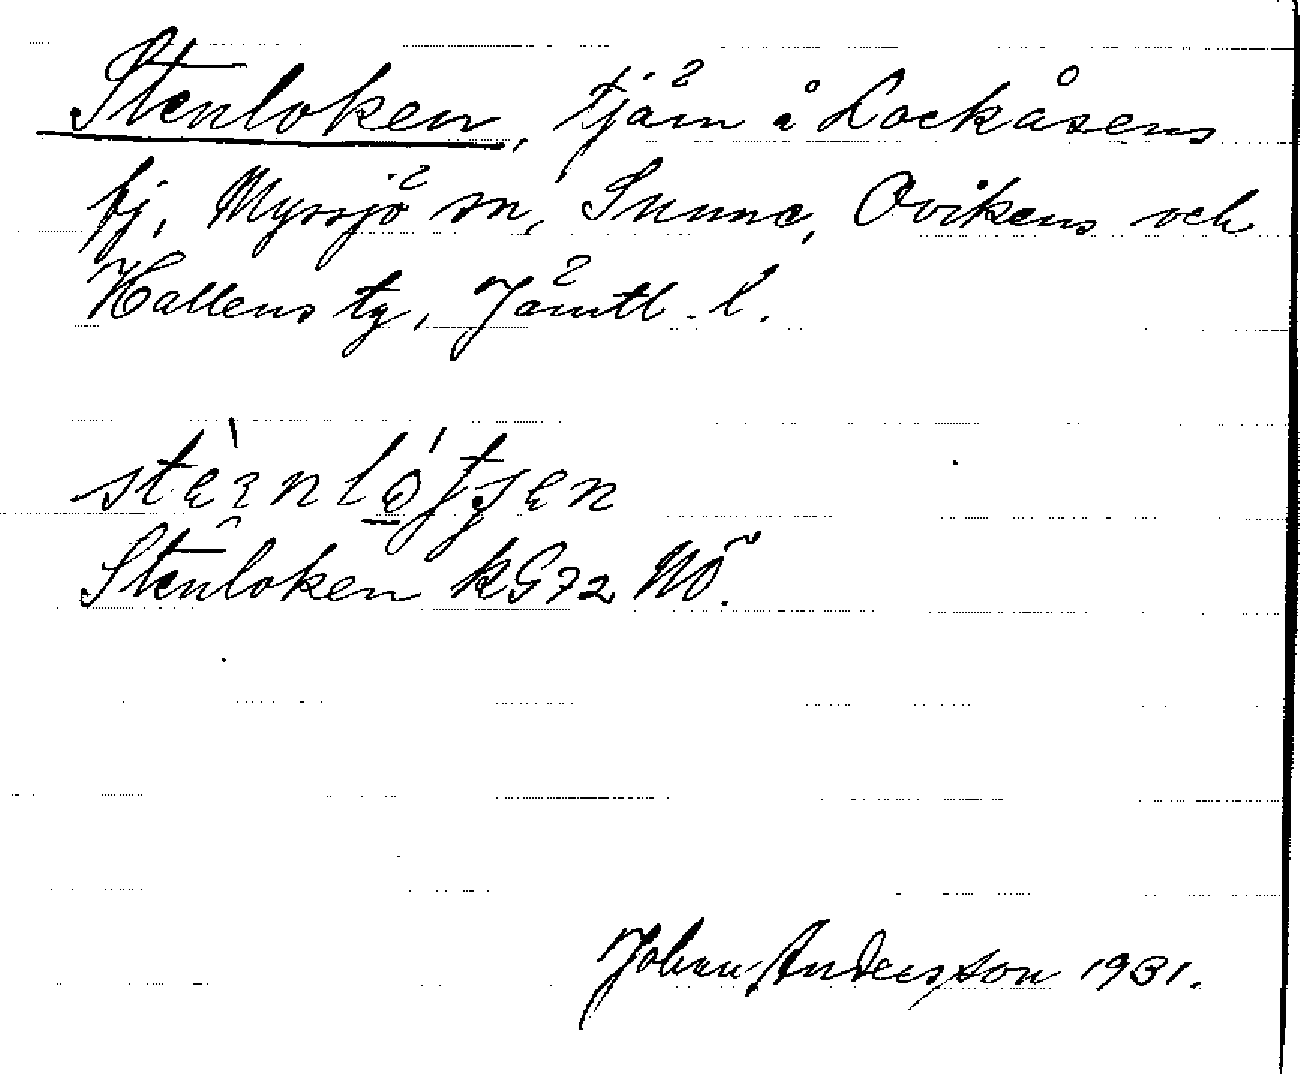 Stenloken, tjärn å Lockåsens
fj, Myssjö sn, Sunne, Ovikens och
Hallens tg, Jämtl. l.
Stenloken kG72 NÖ.
Johan Andersson 1931.